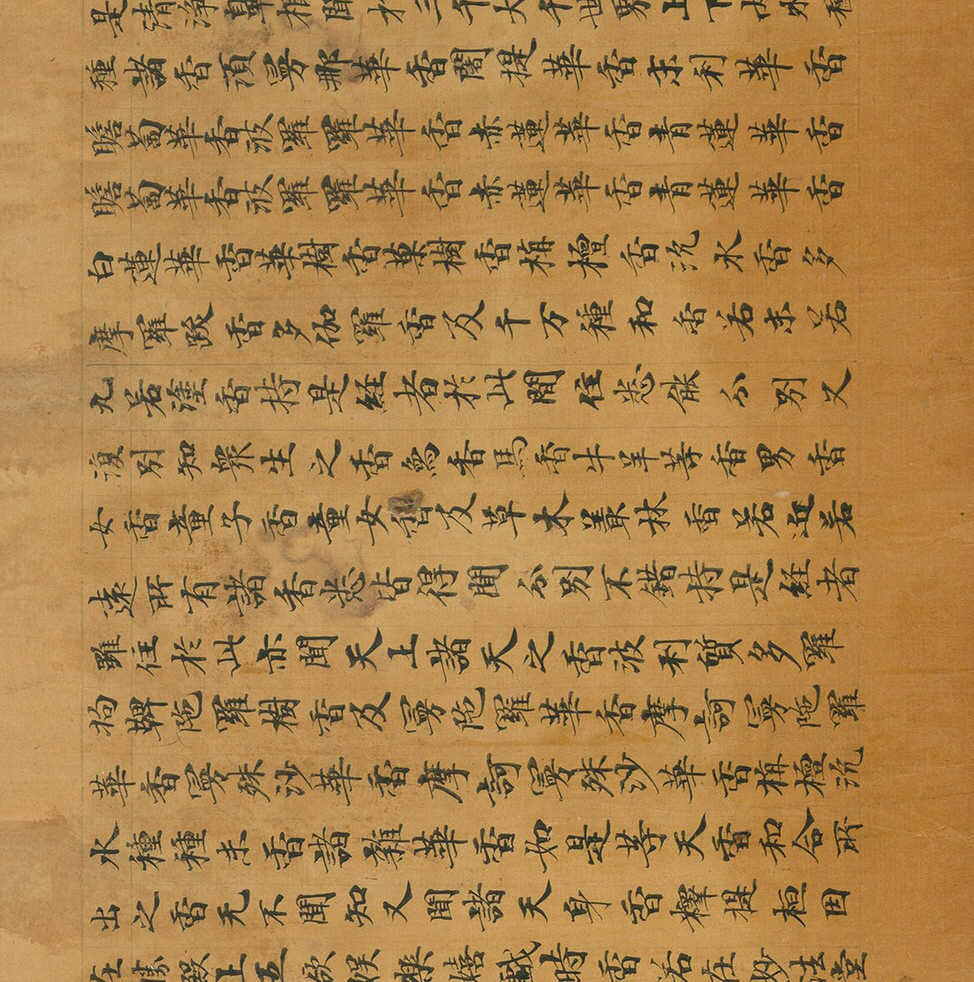 是清淨鼻根聞於三千大千世界上下內外種
種諸香須曼那華香闍提華香末利華香
瞻蔔華香波羅羅華香赤蓮華香青蓮華香
瞻蔔華香波羅羅華香赤蓮華香青蓮華香
白蓮華香華樹香菓樹香栴檀香沉水香多
摩羅跋香多伽羅香及千万種和香若末若
丸若塗香持是経者於此間住悉能分別又
復別知衆生之香烏香馬香牛羊等香男香
女香童子香童女香及草木叢林香若近若
遠所有諸香悉皆得聞分別不錯持是経者
雖住於此亦聞天上諸天之香波利質多羅
拘鞞陀羅樹香及曼陀羅華香摩訶曼陀羅
華香曼殊沙華香摩訶曼殊沙華香栴檀沉
水種種末香諸雜華香如是等天香和合所
出之香无不聞知又聞諸天身香釋提桓因
在勝殿上五欲娛樂嬉戲時香若在妙法堂